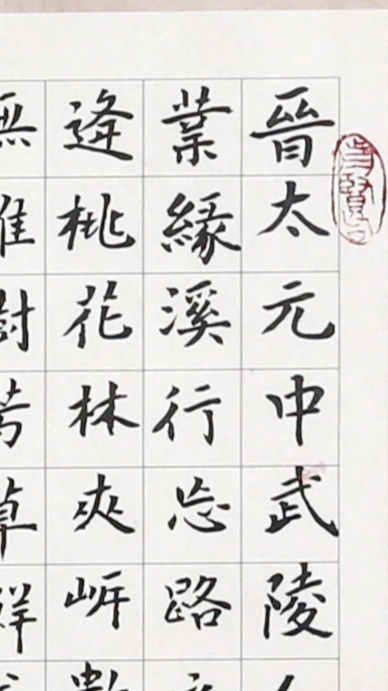 晉太元中武陵
業緣溪行忘路
逢桃花林夾岍
無雜樹芳草鮮